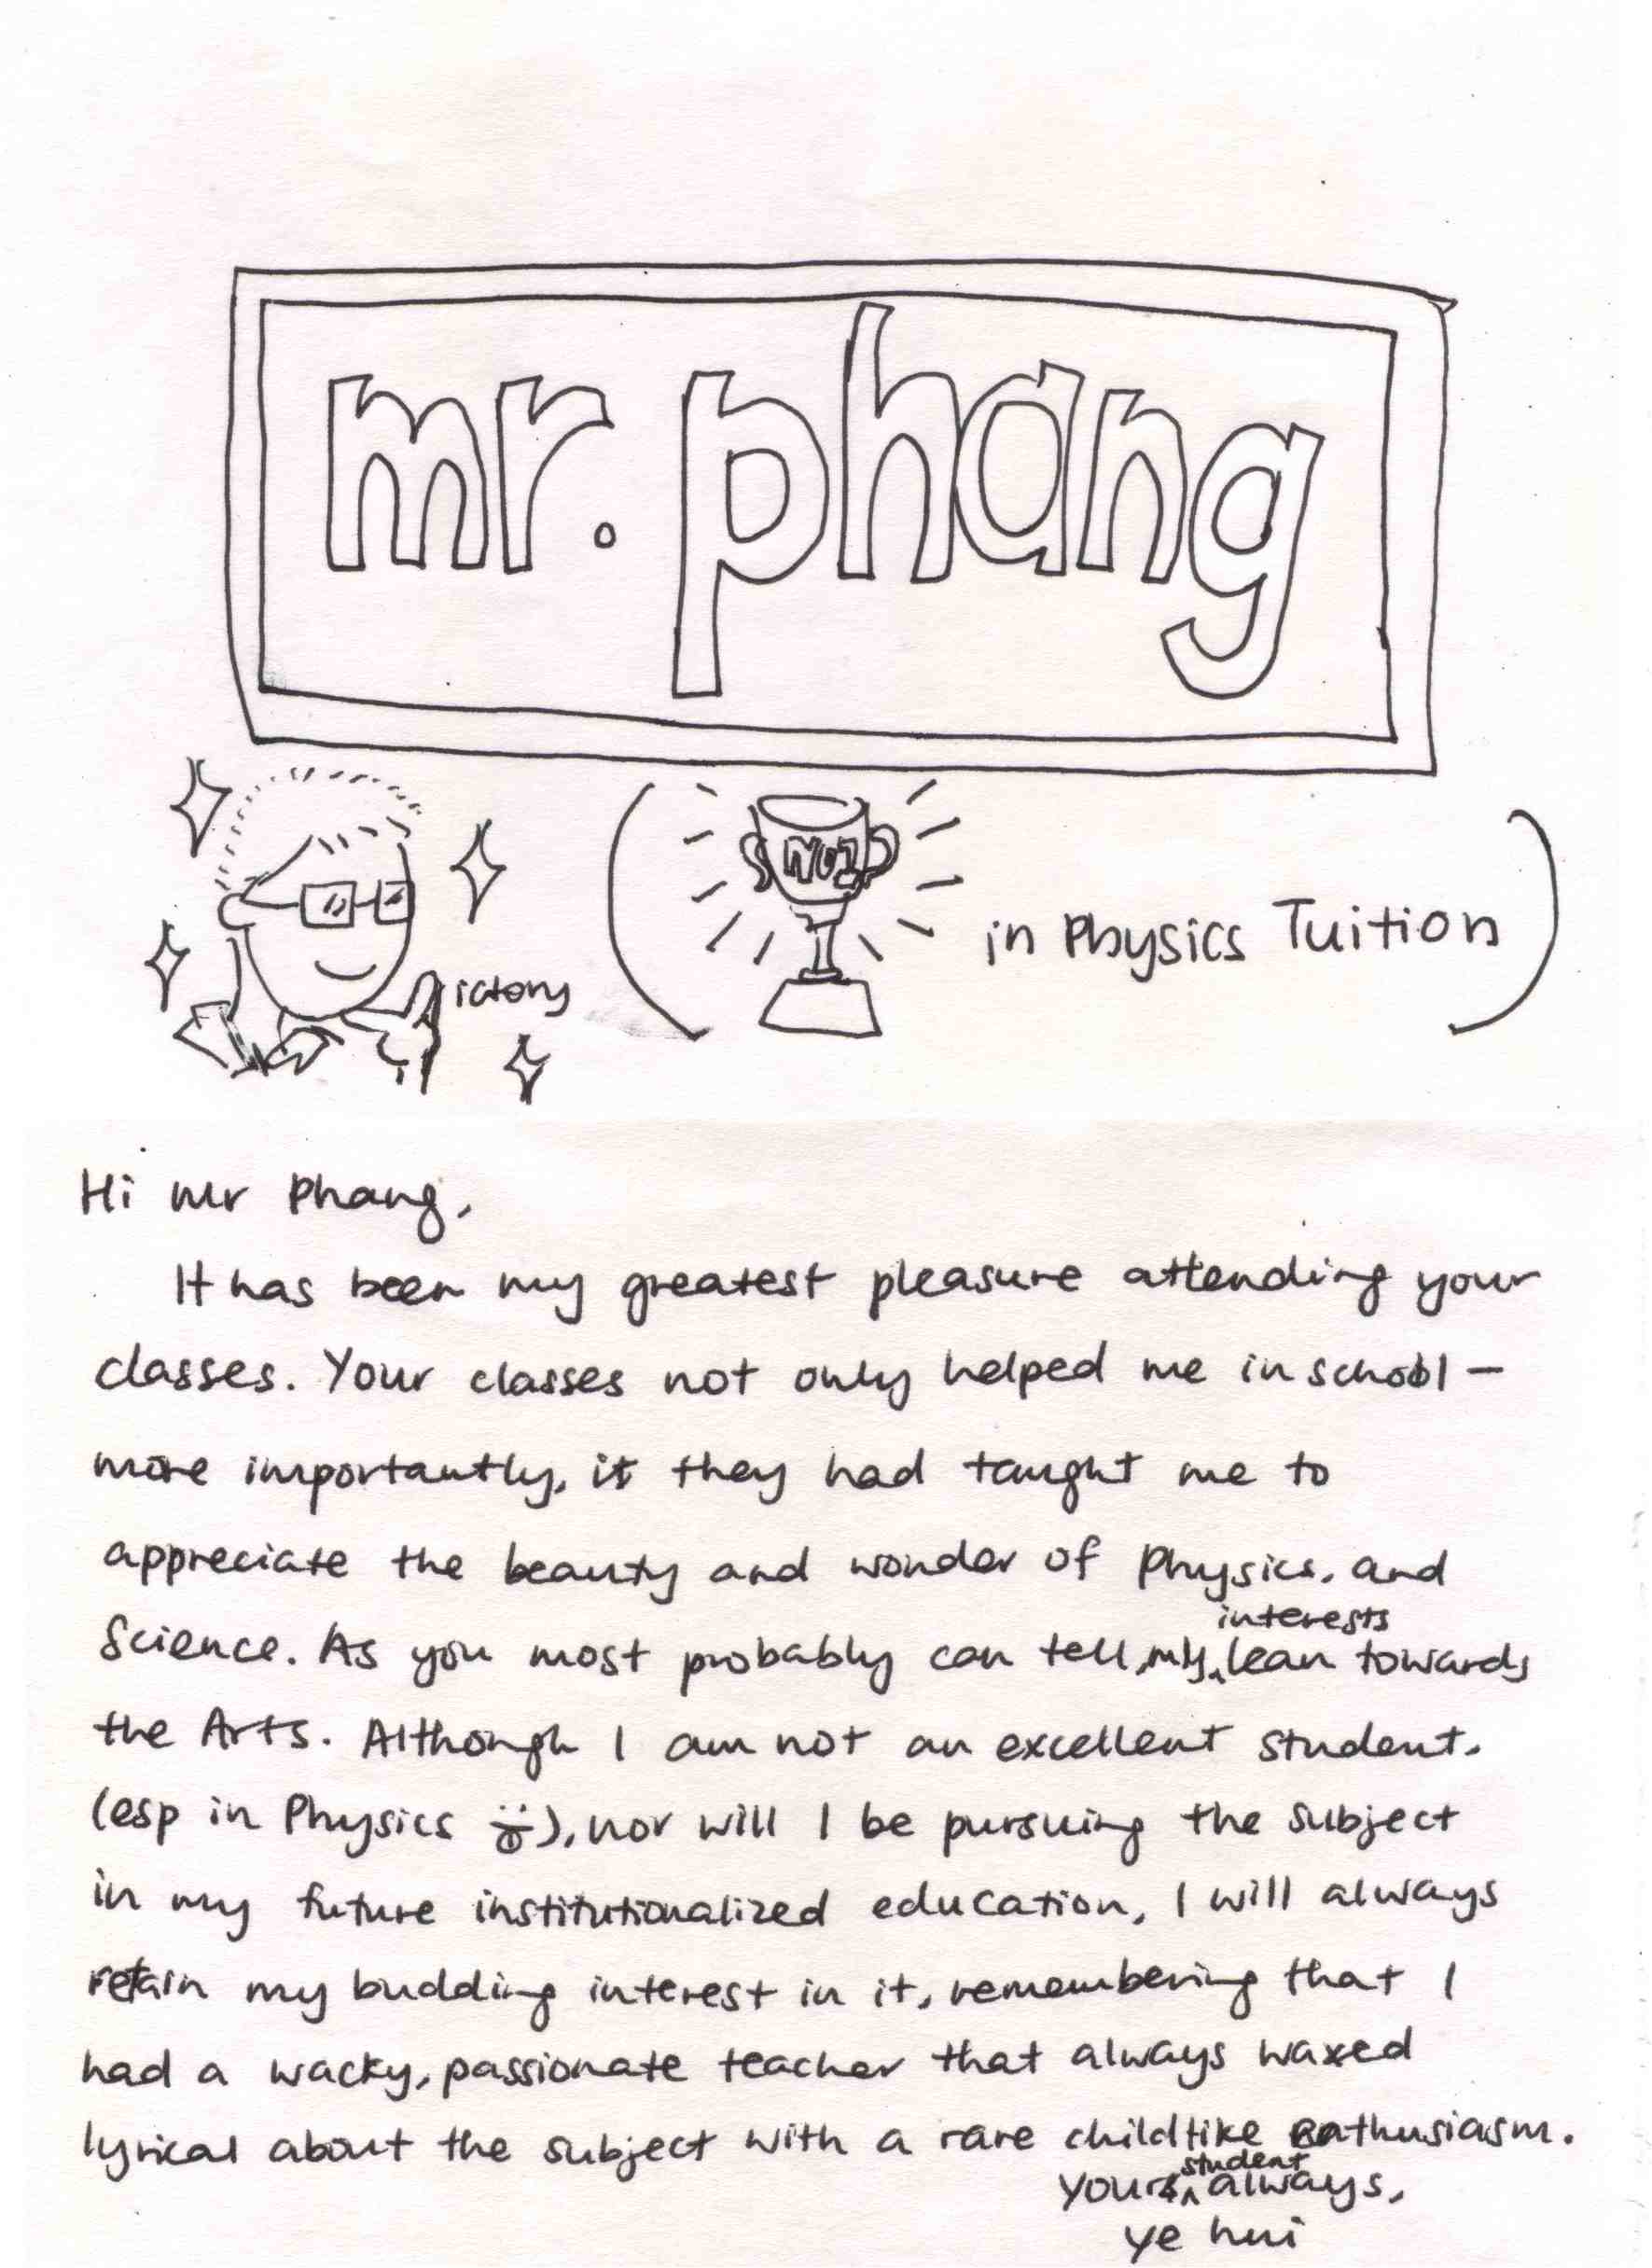 mr. phang
No1
in Physics Tuition
Victory
Hi Mr Phang,
It has been my greatest pleasure attending your
classes. Your classes not only helped me in school –
more importantly, it they had taught me to
appreciate the beauty and wonder of Physics, and
Science. As you most probably can tell, my interests lean towards
the Arts. Although I am not an excellent student,
(esp in Physics), nor will I be pursuing the subject
in my future institutionalized education, I will always
retain my budding interest in it, remembering that I
had a wacky, passionate teacher that always waxed
lyrical about the subject with a rare childlike enthusiasm.
Your student always,
ye hui